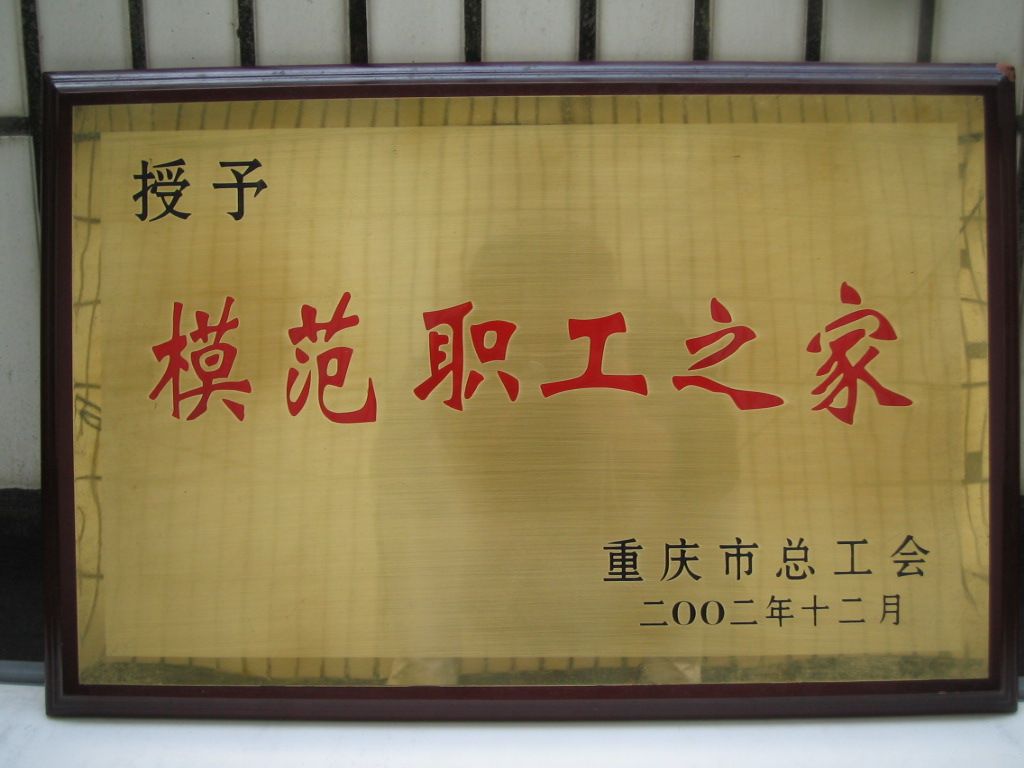 授予
模范职工之家
重庆市总工会
二OO二年十二月